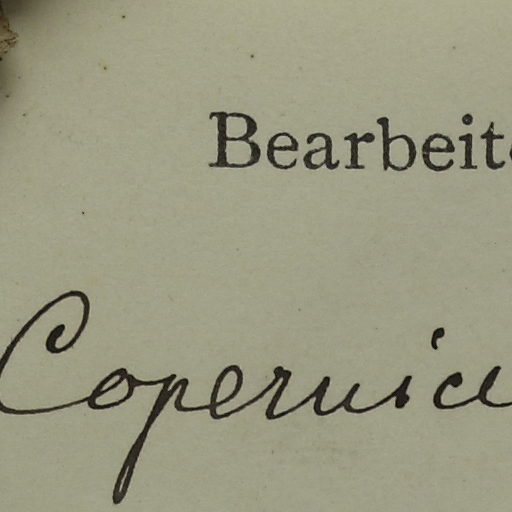 Bearbeite
Copernici